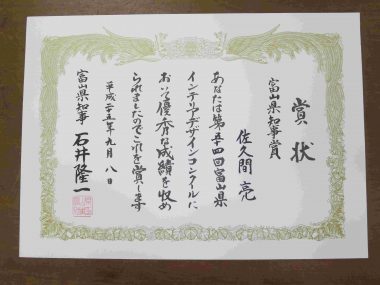 賞状
富山県知事賞
佐久間亮
あなたは第五十四回富山県
インテリアデザインコンクールに
おいて優秀な成績を収め
られましたのでこれを賞します
平成二十五年九月八日
富山県知事 石井隆一